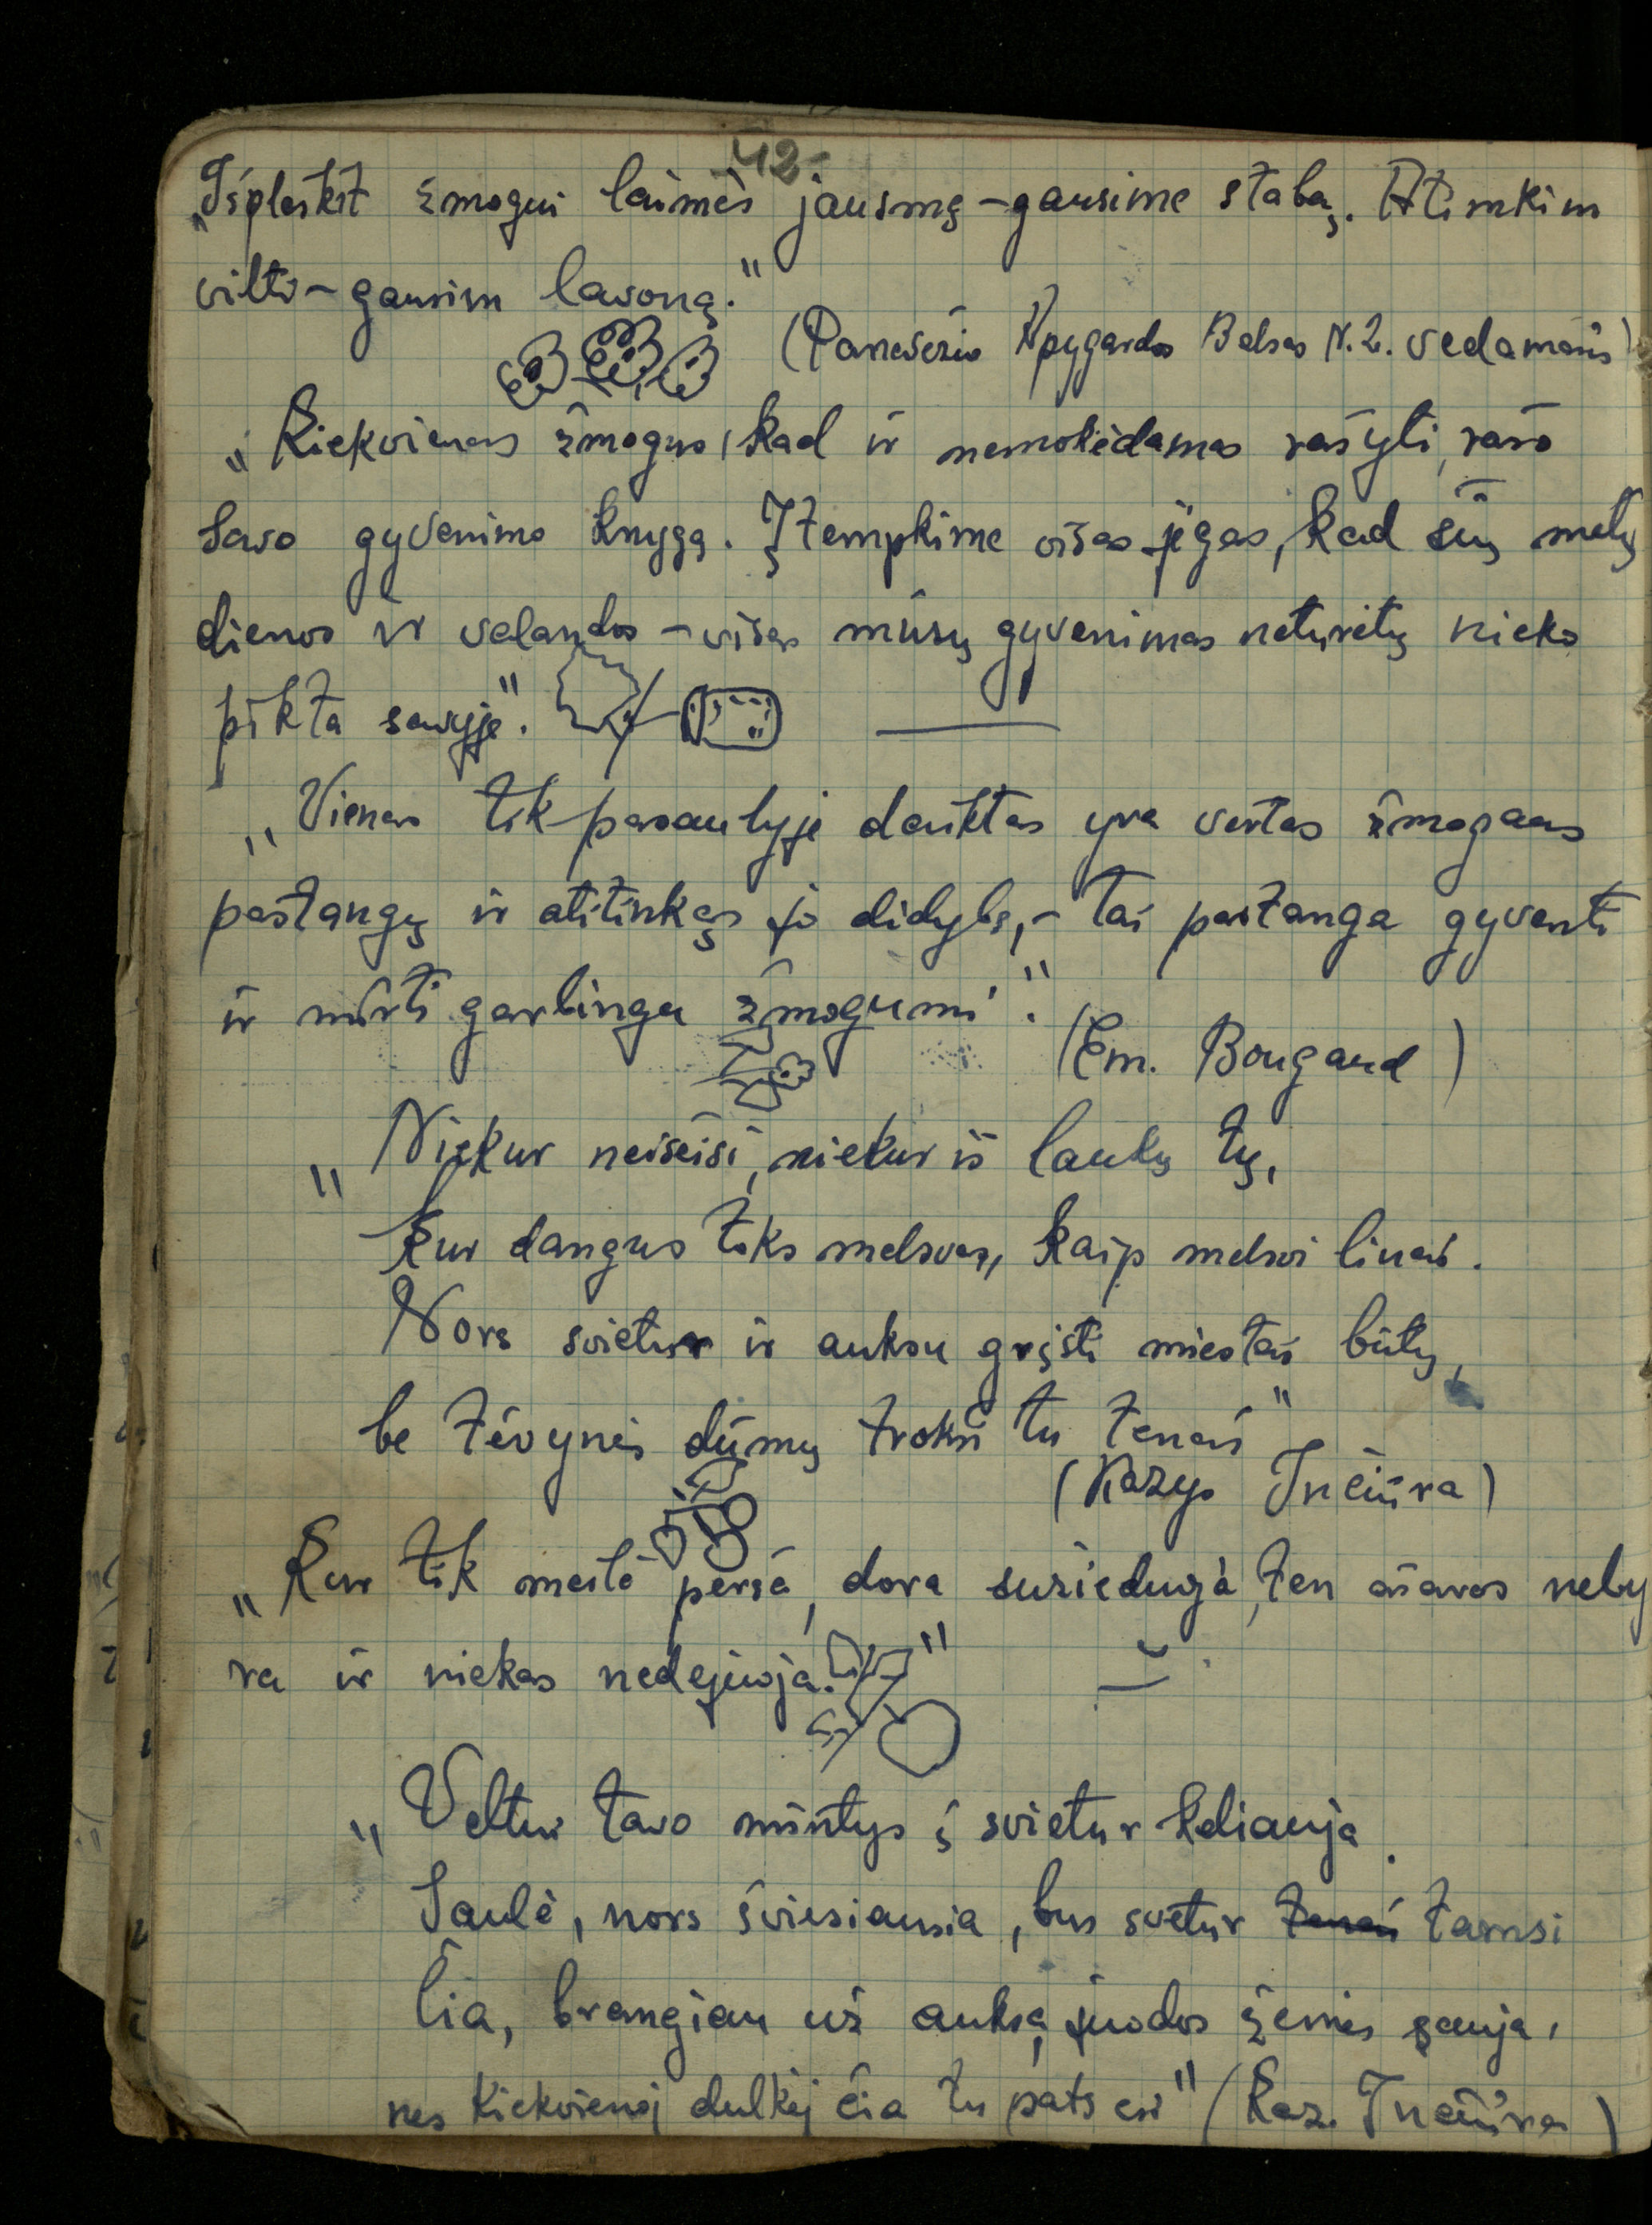 42
„Išplėškit žmogui laimės jausmą – gausime stabą. Atimkim
viltį – gausim lavoną."
(Panevėžio Apygardos Balsas N.2. vedamasis)
„Kiekvienas žmogus, kad ir nemokėdamas rašyti, rašo
savo gyvenimo knygą. Įtempkime visas jėgas, kad šių metų
dienos ir valandos – visas mūsų gyvenimas neturėtų nieko
pikta savyje".
„Vienas tik pasaulyje daiktas yra vertas žmogaus
pastangų ir atitinkąs jo didybę, – tai pastanga gyventi
ir mirti garbingu žmogumi".
(Em. Bougaud)
„Niekur neišeisi, niekur iš laukų tų,
kur dangus toks melsvas, kaip melsvi linai.
Nors svietur ir auksu grįsti miestai būtų,
be tėvynės dūmų trokši tu tenai"
(Kazys Inčiūra)
„Kur tik meilė perša, dora sužieduoja, ten ašaros neby
ra ir niekas nedejuoja."
„Veltui tavo mintys į svietur keliauja.
Saulė, nors šviesiausia, bus svetur tenai tamsi
Čia, brangiau už auksą juodos žemės sauja,
nes kiekvienoj dulkėj čia tu pats esi" (Kaz. Inčiūra)